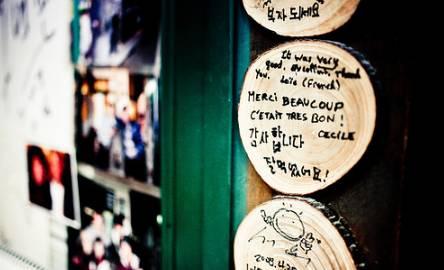 부자 되세요
It was very
good, ev
thank
You. Loïc (French)
MERCI BEAUCOUP
C'ETAIT TRES BON !
CECILE
감사 합니다
잘 먹었어요!
2009.4.25